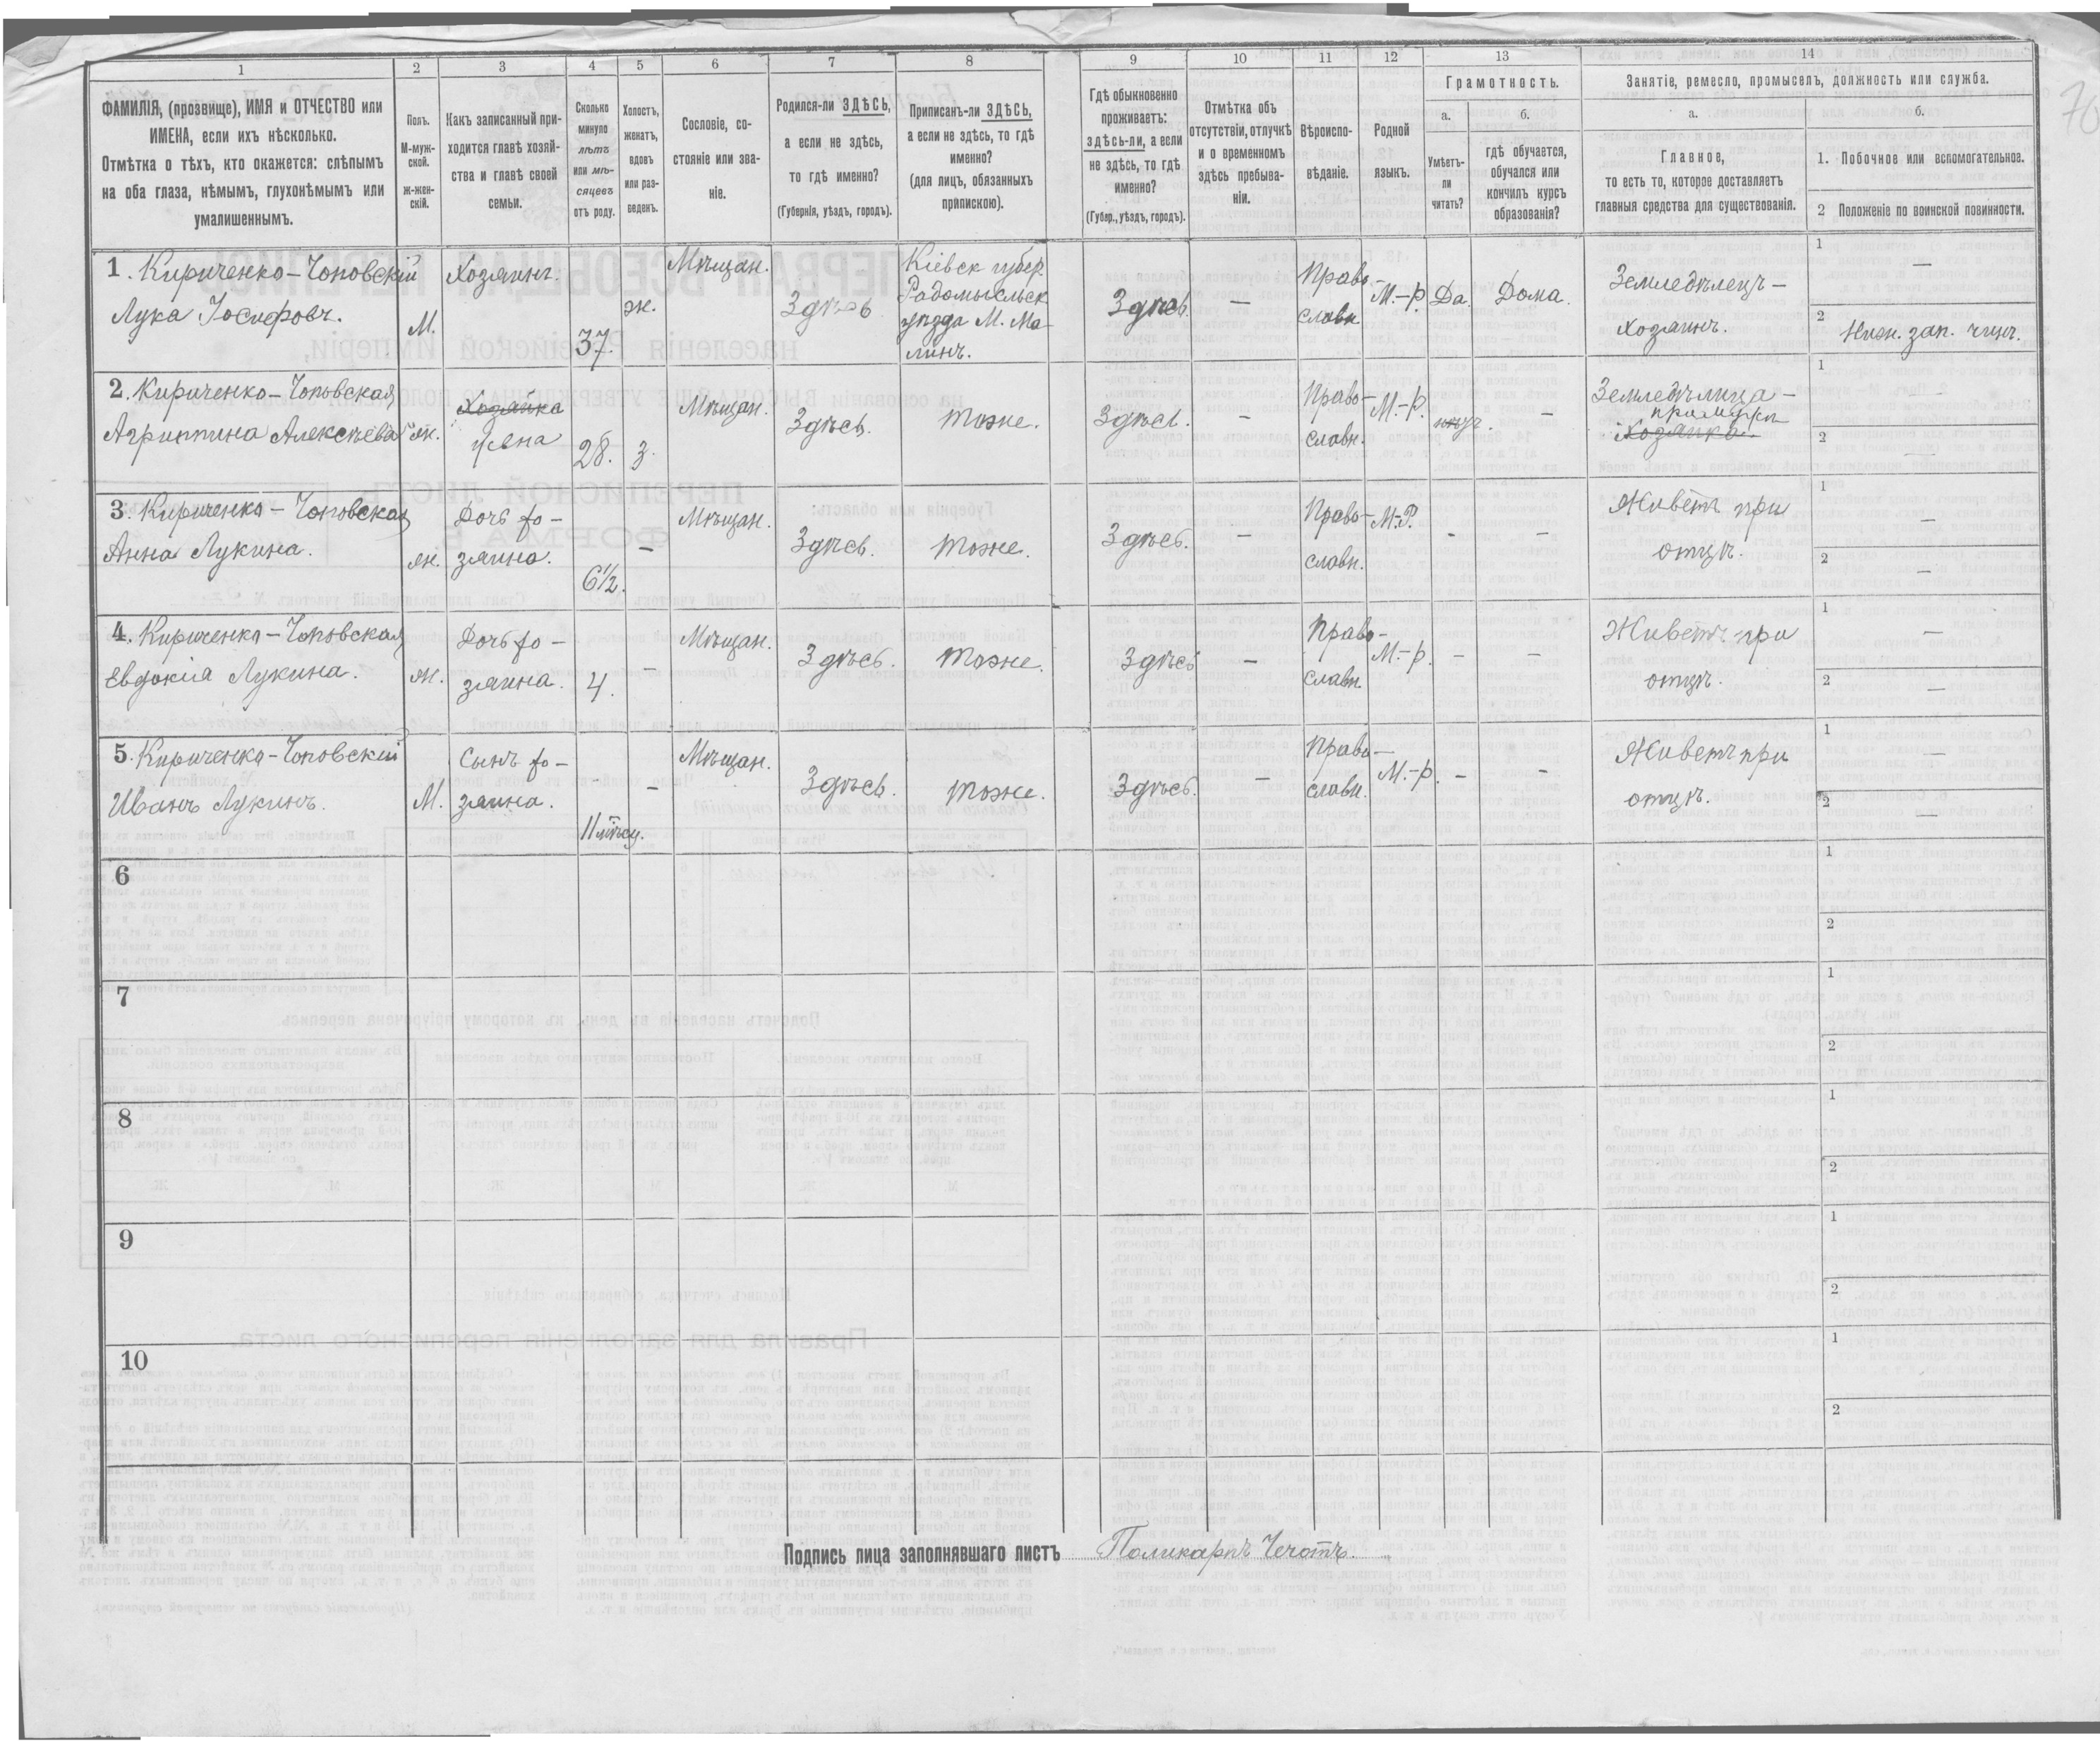 1 2 3 4 5 6 7 8 9 10 11 12 13 14
ФАМИЛІЯ, (прозвище), ИМЯ и ОТЧЕСТВО или
ИМЕНА, если ихъ нѣсколько.
Отмѣтка о тѣхъ, кто окажется: слѣпымъ
на оба глаза, нѣмымъ, глухонѣмымъ или
умалишеннымъ.
Полъ.
М-муж-
ской.
Ж-жен-
скій.
Какъ записанный при-
ходится главѣ хозяй-
ства и главѣ своей
семьи.
Сколько
минуло
лѣтъ
или мѣ-
сяцевъ
отъ роду.
Холостъ,
женатъ,
вдовъ
или раз-
веденъ.
Сословіе, со-
стояніе или зва-
ніе.
Родился-ли ЗДѢСЬ,
а если не здѣсь,
то гдѣ именно?
(Губернія, уѣздъ, городъ).
Приписанъ-ли ЗДѢСЬ,
а если не здѣсь, то гдѣ
именно?
(для лицъ, обязанныхъ
припискою).
Гдѣ обыкновенно
проживаетъ:
здѣсь-ли, а если
не здѣсь, то гдѣ
именно?
(Губер., уѣздъ, городъ).
Отмѣтка объ
отсутствіи, отлучкѣ
и о временномъ
здѣсь пребыва-
ніи.
Вѣроиспо-
вѣданіе.
Родной
языкъ.
Грамотность.
а.
Умѣетъ-
ли
читать?
б.
гдѣ обучается,
обучался или
кончилъ курсъ
образованія?
Занятіе, ремесло, промыселъ, должность или служба.
а.
Главное,
то есть то, которое доставляетъ
главныя средства для существованія.
б.
1. Побочное или вспомогательное.
2 Положеніе по воинской повинности.
76
1. Кириченко-Чоповскій
Лука Іосифовъ.
М.
Хозяинъ.
37.
ж.
Мѣщан.
Здѣсь
Кіевск губер.
Радомысльск
уѣзда М. Ма-
линъ.
Здѣсь.
—
Право-
славн.
М.-р.
Да.
Дома.
Земледѣлецъ -
хозяинъ.
1 —
2 Нижн. зап. чинъ.
2. Кириченко-Чоповская
Агрипина Алексѣева
ж.
Хозяйка
жена
28.
з.
Мѣщан.
Здѣсь.
тоже.
Здѣсь.
-
Право-
славн.
М.-р.
-
Земледѣлица -
при мужѣ
Хозяйка.
1 —
2 —
3. Кириченко-Чоповская
Анна Лукина.
ж.
Дочь хо-
зяина.
6 1/2.
-
Мѣщан.
Здѣсь.
тоже.
Здѣсь.
-
Право-
славн.
М.-Р.
-
-
Живетъ при
отцѣ.
1 —
2 —
4. Кириченко-Чоповская
Евдокія Лукина.
ж.
Дочь хо-
зяина.
4.
-
Мѣщан.
Здѣсь.
тоже.
Здѣсь
-
Право-
славн.
М.-р.
-
-
Живетъ при
отцѣ.
1 —
2 —
5. Кириченко-Чоповскій
Иванъ Лукинъ.
М.
Сынъ хо-
зяина.
11 мѣсц.
-
Мѣщан.
Здѣсь.
тоже.
Здѣсь.
-
Право-
славн.
М.-р.
-
-
Живетъ при
отцѣ.
1 —
2 —
6
1
2
7
1
2
8
1
2
9
1
2
10
1
2
Подпись лица заполнявшаго листъ Поликарпъ Чечотъ.